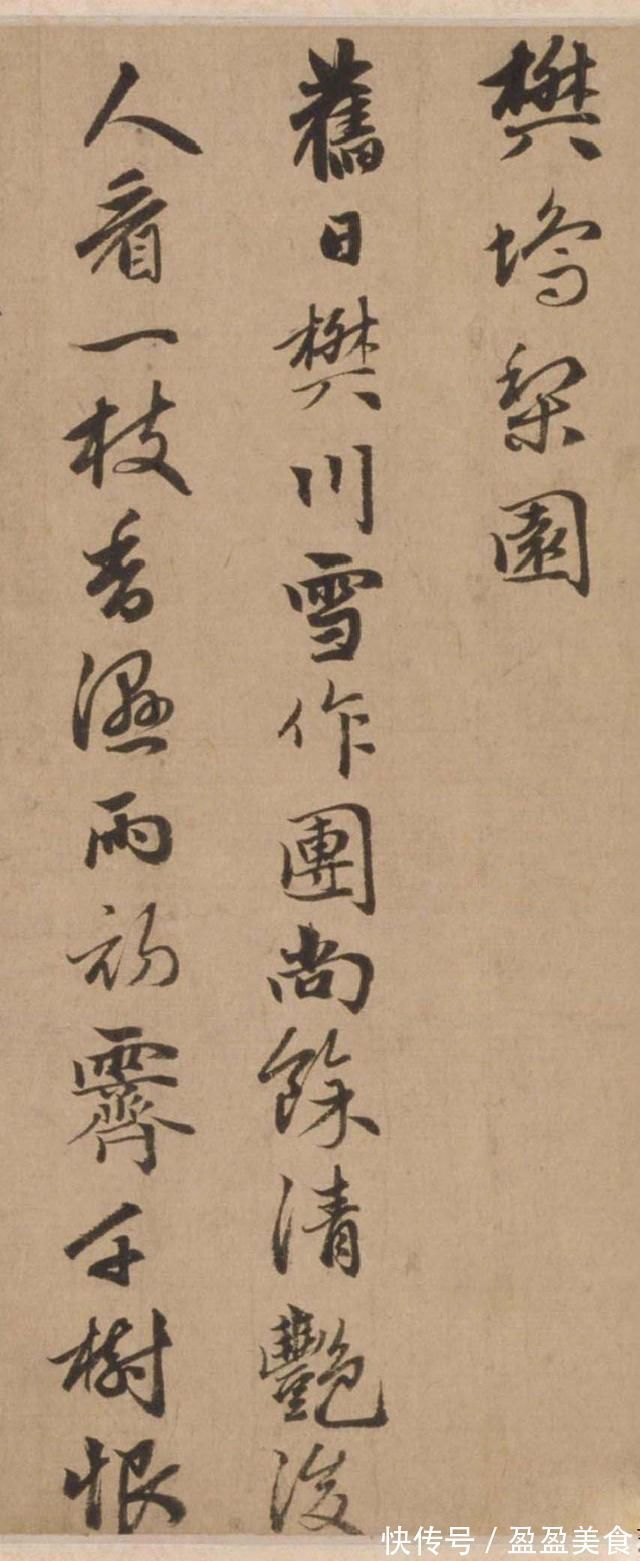 樊塢梨園
舊日樊川雪作團尚餘清艷後
人看一枝香濕雨初霽千樹恨
快传号/盈盈美食